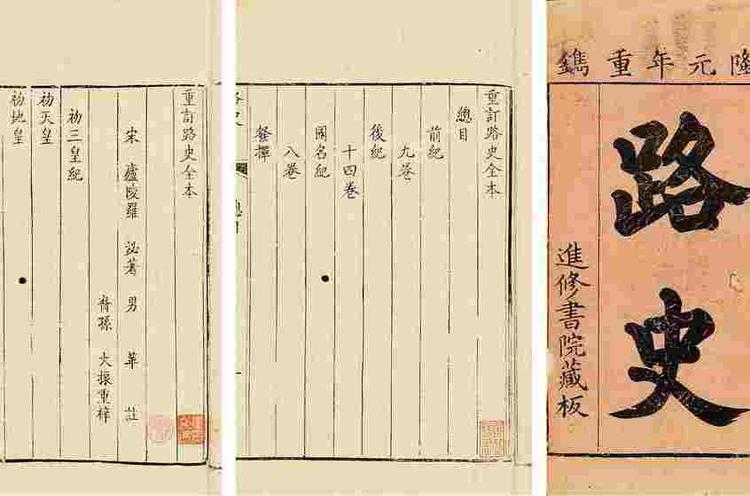 隆元年重鐫
路史
進修書院藏板
重訂路史全本
總目
前紀
九卷
後紀
十四卷
國名紀
八卷
發揮
重訂路史全本
宋 廬陵羅 泌著 男 苹 註
裔孫 大振重梓
初三皇紀
初天皇
初地皇